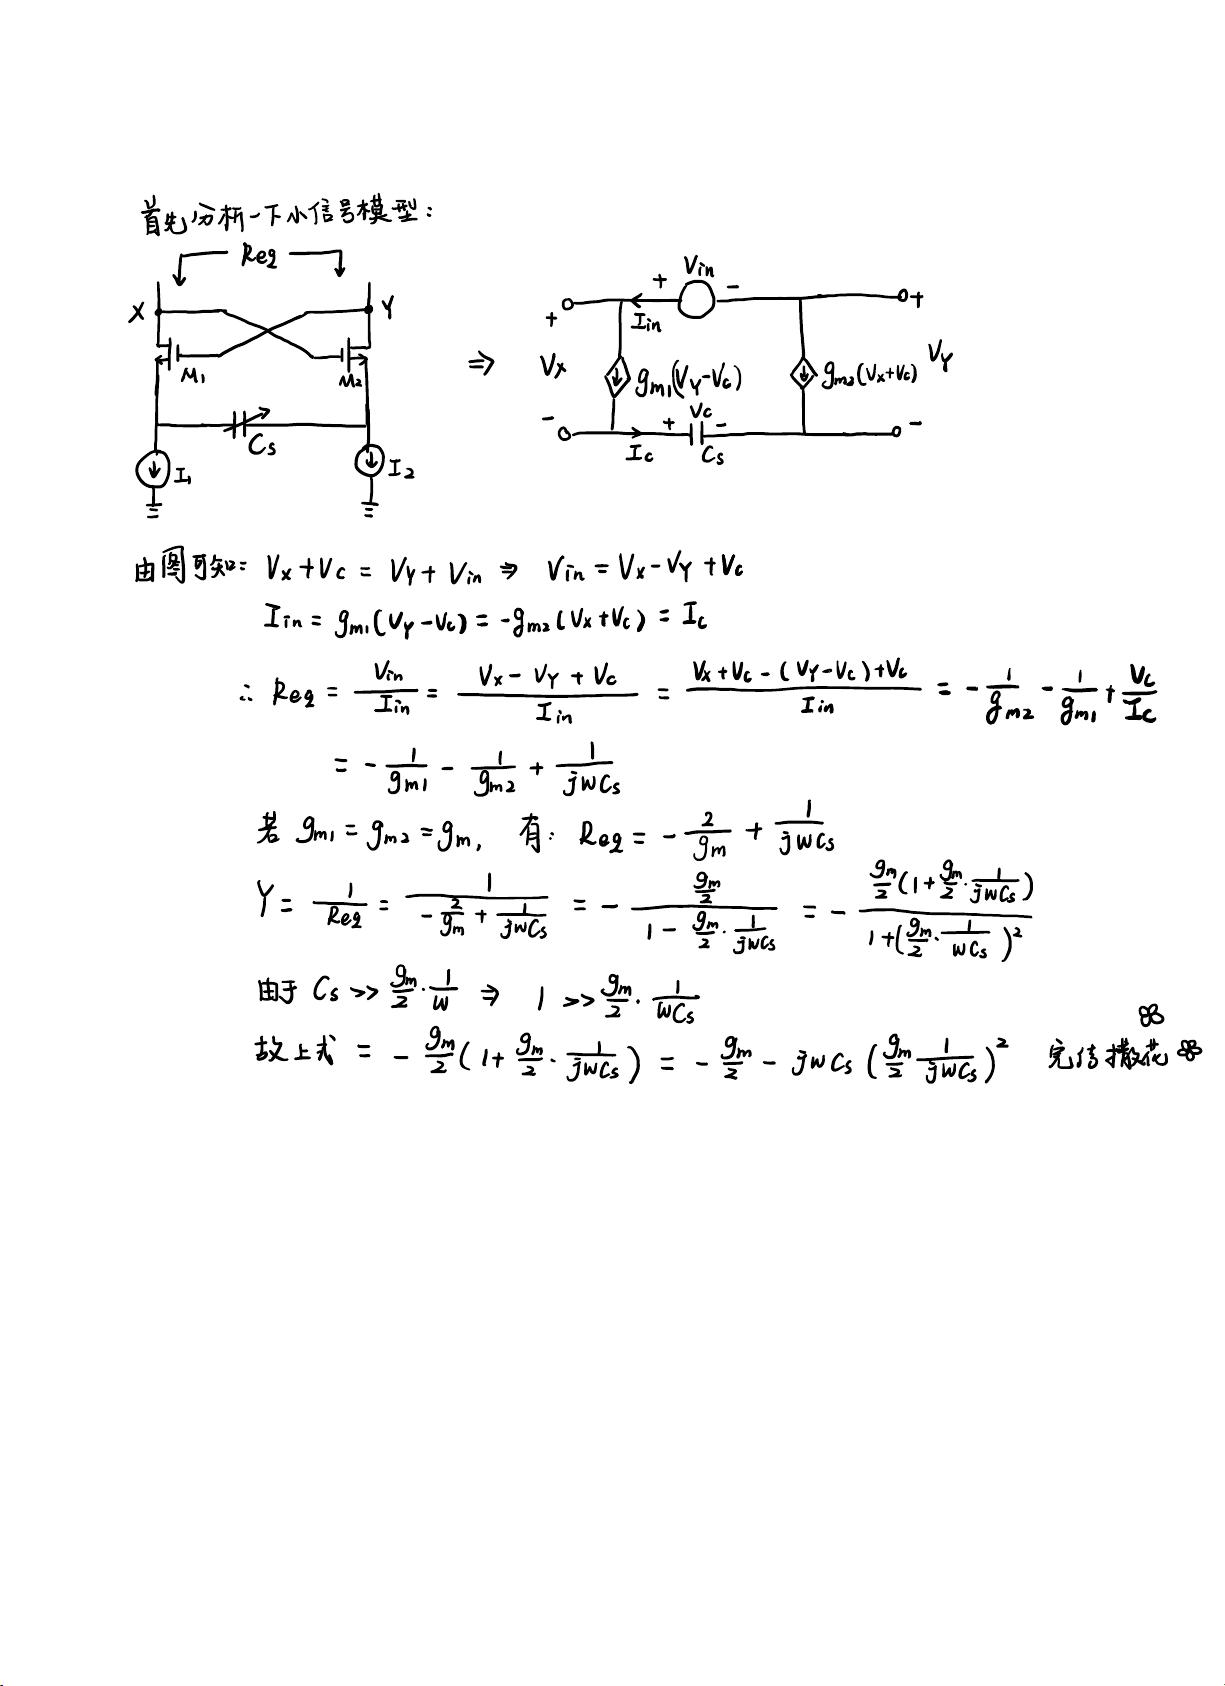 首先分析一下小信号模型:
Req
X Y
M1 M2
Cs
I1 I2
⇒
Vin
+ -
Iin
+ Vx -
gm1(VY-Vc)
gm2(Vx+Vc)
+ VY -
+ Vc -
Ic Cs
由图可知: Vx+Vc = VY+Vin ⇒ Vin = Vx-VY+Vc
Iin = gm1(VY-Vc) = -gm2(Vx+Vc) = Ic
∴ Req = Vin/Iin = (Vx-VY+Vc)/Iin = (Vx+Vc-(VY-Vc)+Vc)/Iin = -1/gm2 - 1/gm1 + Vc/Ic
= -1/gm1 - 1/gm2 + 1/(jwCs)
若 gm1=gm2=gm, 有: Req = -2/gm + 1/(jwCs)
Y = 1/Req = 1/(-2/gm + 1/(jwCs)) = -(gm/2)/(1 - gm/2·1/(jwCs)) = -(gm/2(1+gm/2·1/(jwCs)))/(1+(gm/2·1/(wCs))²)
由于 Cs >> gm/2·1/w ⇒ 1 >> gm/2·1/(wCs)
故上式 = -gm/2(1+gm/2·1/(jwCs)) = -gm/2 - jwCs(gm/2 1/(jwCs))² 完结撒花